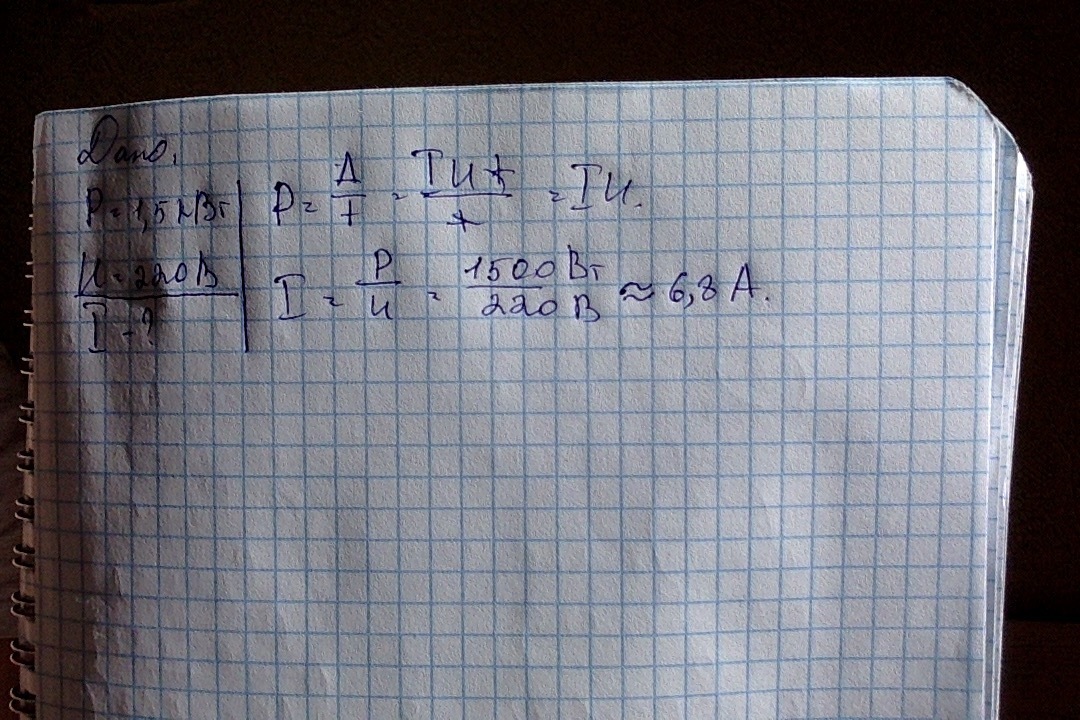 Дано,
P = 1,5 кВт
U = 220 В
I - ?
P = A/t = IUt/t = IU.
I = P/U = 1500 Вт/220 В ≈ 6,8 A.